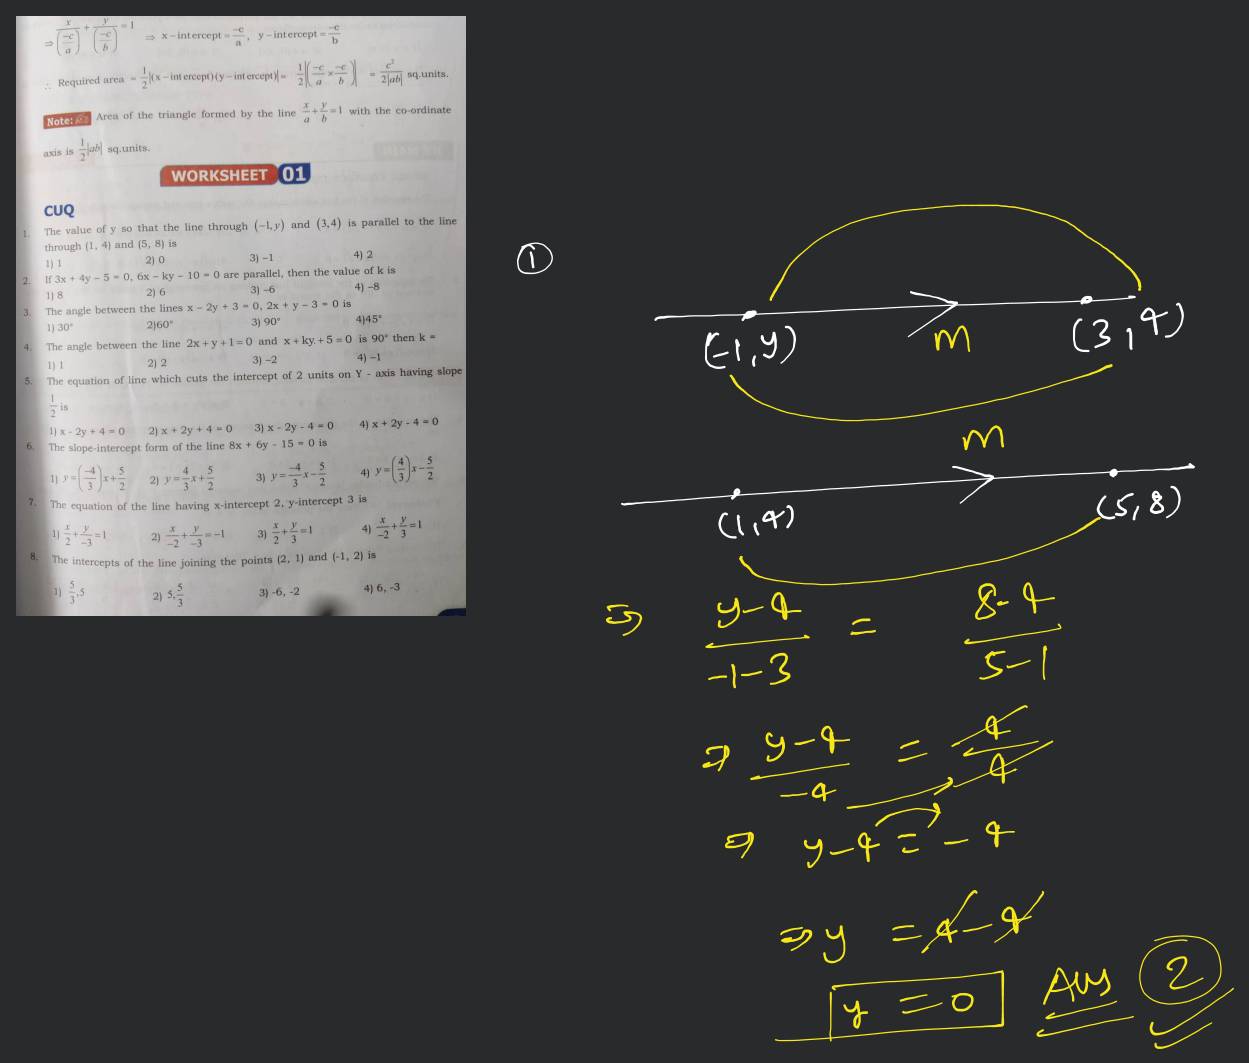 ⇒ x/(-c/a) + y/(-c/b) = 1 ⇒ x-intercept = -c/a, y-intercept = -c/b
∴ Required area = 1/2|(x-intercept)(y-intercept)| = 1/2|(-c/a × -c/b)| = c²/2|ab| sq.units.
Note: Area of the triangle formed by the line x/a + y/b = 1 with the co-ordinate
axis is 1/2|ab| sq.units.
WORKSHEET 01
CUQ
1. The value of y so that the line through (-1,y) and (3,4) is parallel to the line
through (1, 4) and (5, 8) is
1) 1 2) 0 3) -1 4) 2
2. If 3x + 4y - 5 = 0, 6x - ky - 10 = 0 are parallel, then the value of k is
1) 8 2) 6 3) -6 4) -8
3. The angle between the lines x - 2y + 3 = 0, 2x + y - 3 = 0 is
1) 30° 2)60° 3) 90° 4)45°
4. The angle between the line 2x + y + 1 = 0 and x + ky. + 5 = 0 is 90° then k =
1) 1 2) 2 3) -2 4) -1
5. The equation of line which cuts the intercept of 2 units on Y - axis having slope
1/2 is
1) x - 2y + 4 = 0 2) x + 2y + 4 = 0 3) x - 2y - 4 = 0 4) x + 2y - 4 = 0
6. The slope-intercept form of the line 8x + 6y - 15 = 0 is
1) y = (-4/3)x + 5/2 2) y = 4/3 x + 5/2 3) y = -4/3 x - 5/2 4) y = (4/3)x - 5/2
7. The equation of the line having x-intercept 2, y-intercept 3 is
1) x/2 + y/-3 = 1 2) x/-2 + y/-3 = -1 3) x/2 + y/3 = 1 4) x/-2 + y/3 = 1
8. The intercepts of the line joining the points (2, 1) and (-1, 2) is
1) 5/3, 5 2) 5, 5/3 3) -6, -2 4) 6, -3
①
(-1, y) m (3, 4)
m
(1, 4) (5, 8)
⇒ y-4/-1-3 = 8-4/5-1
⇒ y-4/-4 = 4/4
⇒ y-4 = -4
⇒ y = 4-4
y = 0 Ans ②